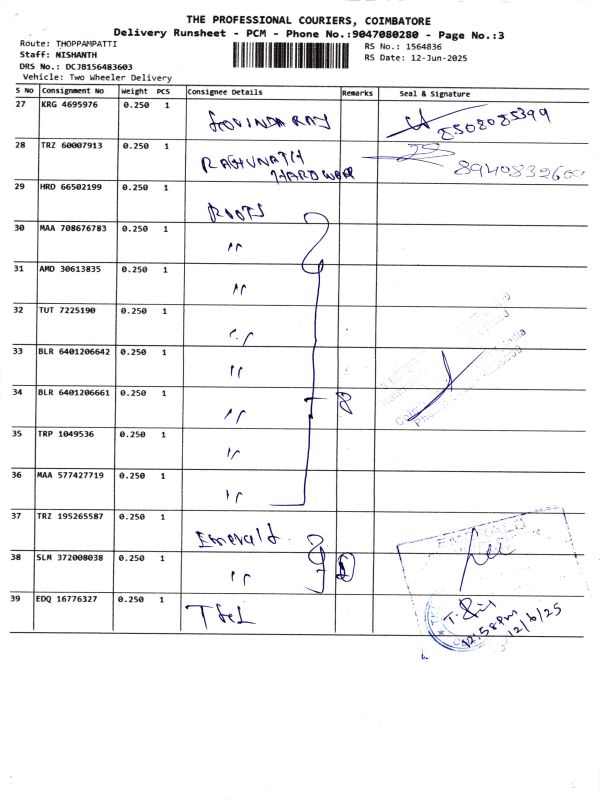 THE PROFESSIONAL COURIERS, COIMBATORE
Delivery Runsheet - PCM - Phone No.:9047080280 - Page No.:3
Route: THOPPAMPATTI
RS No.: 1564836
Staff: NISHANTH
RS Date: 12-Jun-2025
DRS No.: DCJB156483603
Vehicle: Two Wheeler Delivery
S No Consignment No Weight PCS Consignee Details Remarks Seal & Signature
27 KRG 4695976 0.250 1 GOVINDA RAJ 8508085399
28 TRZ 60007913 0.250 1 RAGHUNATH
HARDWAR
29 HRD 66502199 0.250 1 ROOTS
30 MAA 708676783 0.250 1 "
31 AMD 30613835 0.250 1 "
32 TUT 7225190 0.250 1 "
33 BLR 6401206642 0.250 1 "
34 BLR 6401206661 0.250 1 " 8
35 TRP 1049536 0.250 1 "
36 MAA 577427719 0.250 1 "
37 TRZ 195265587 0.250 1 Emerald
38 SLM 372008038 0.250 1 "
39 EDQ 16776327 0.250 1
12:58pm
12/6/25